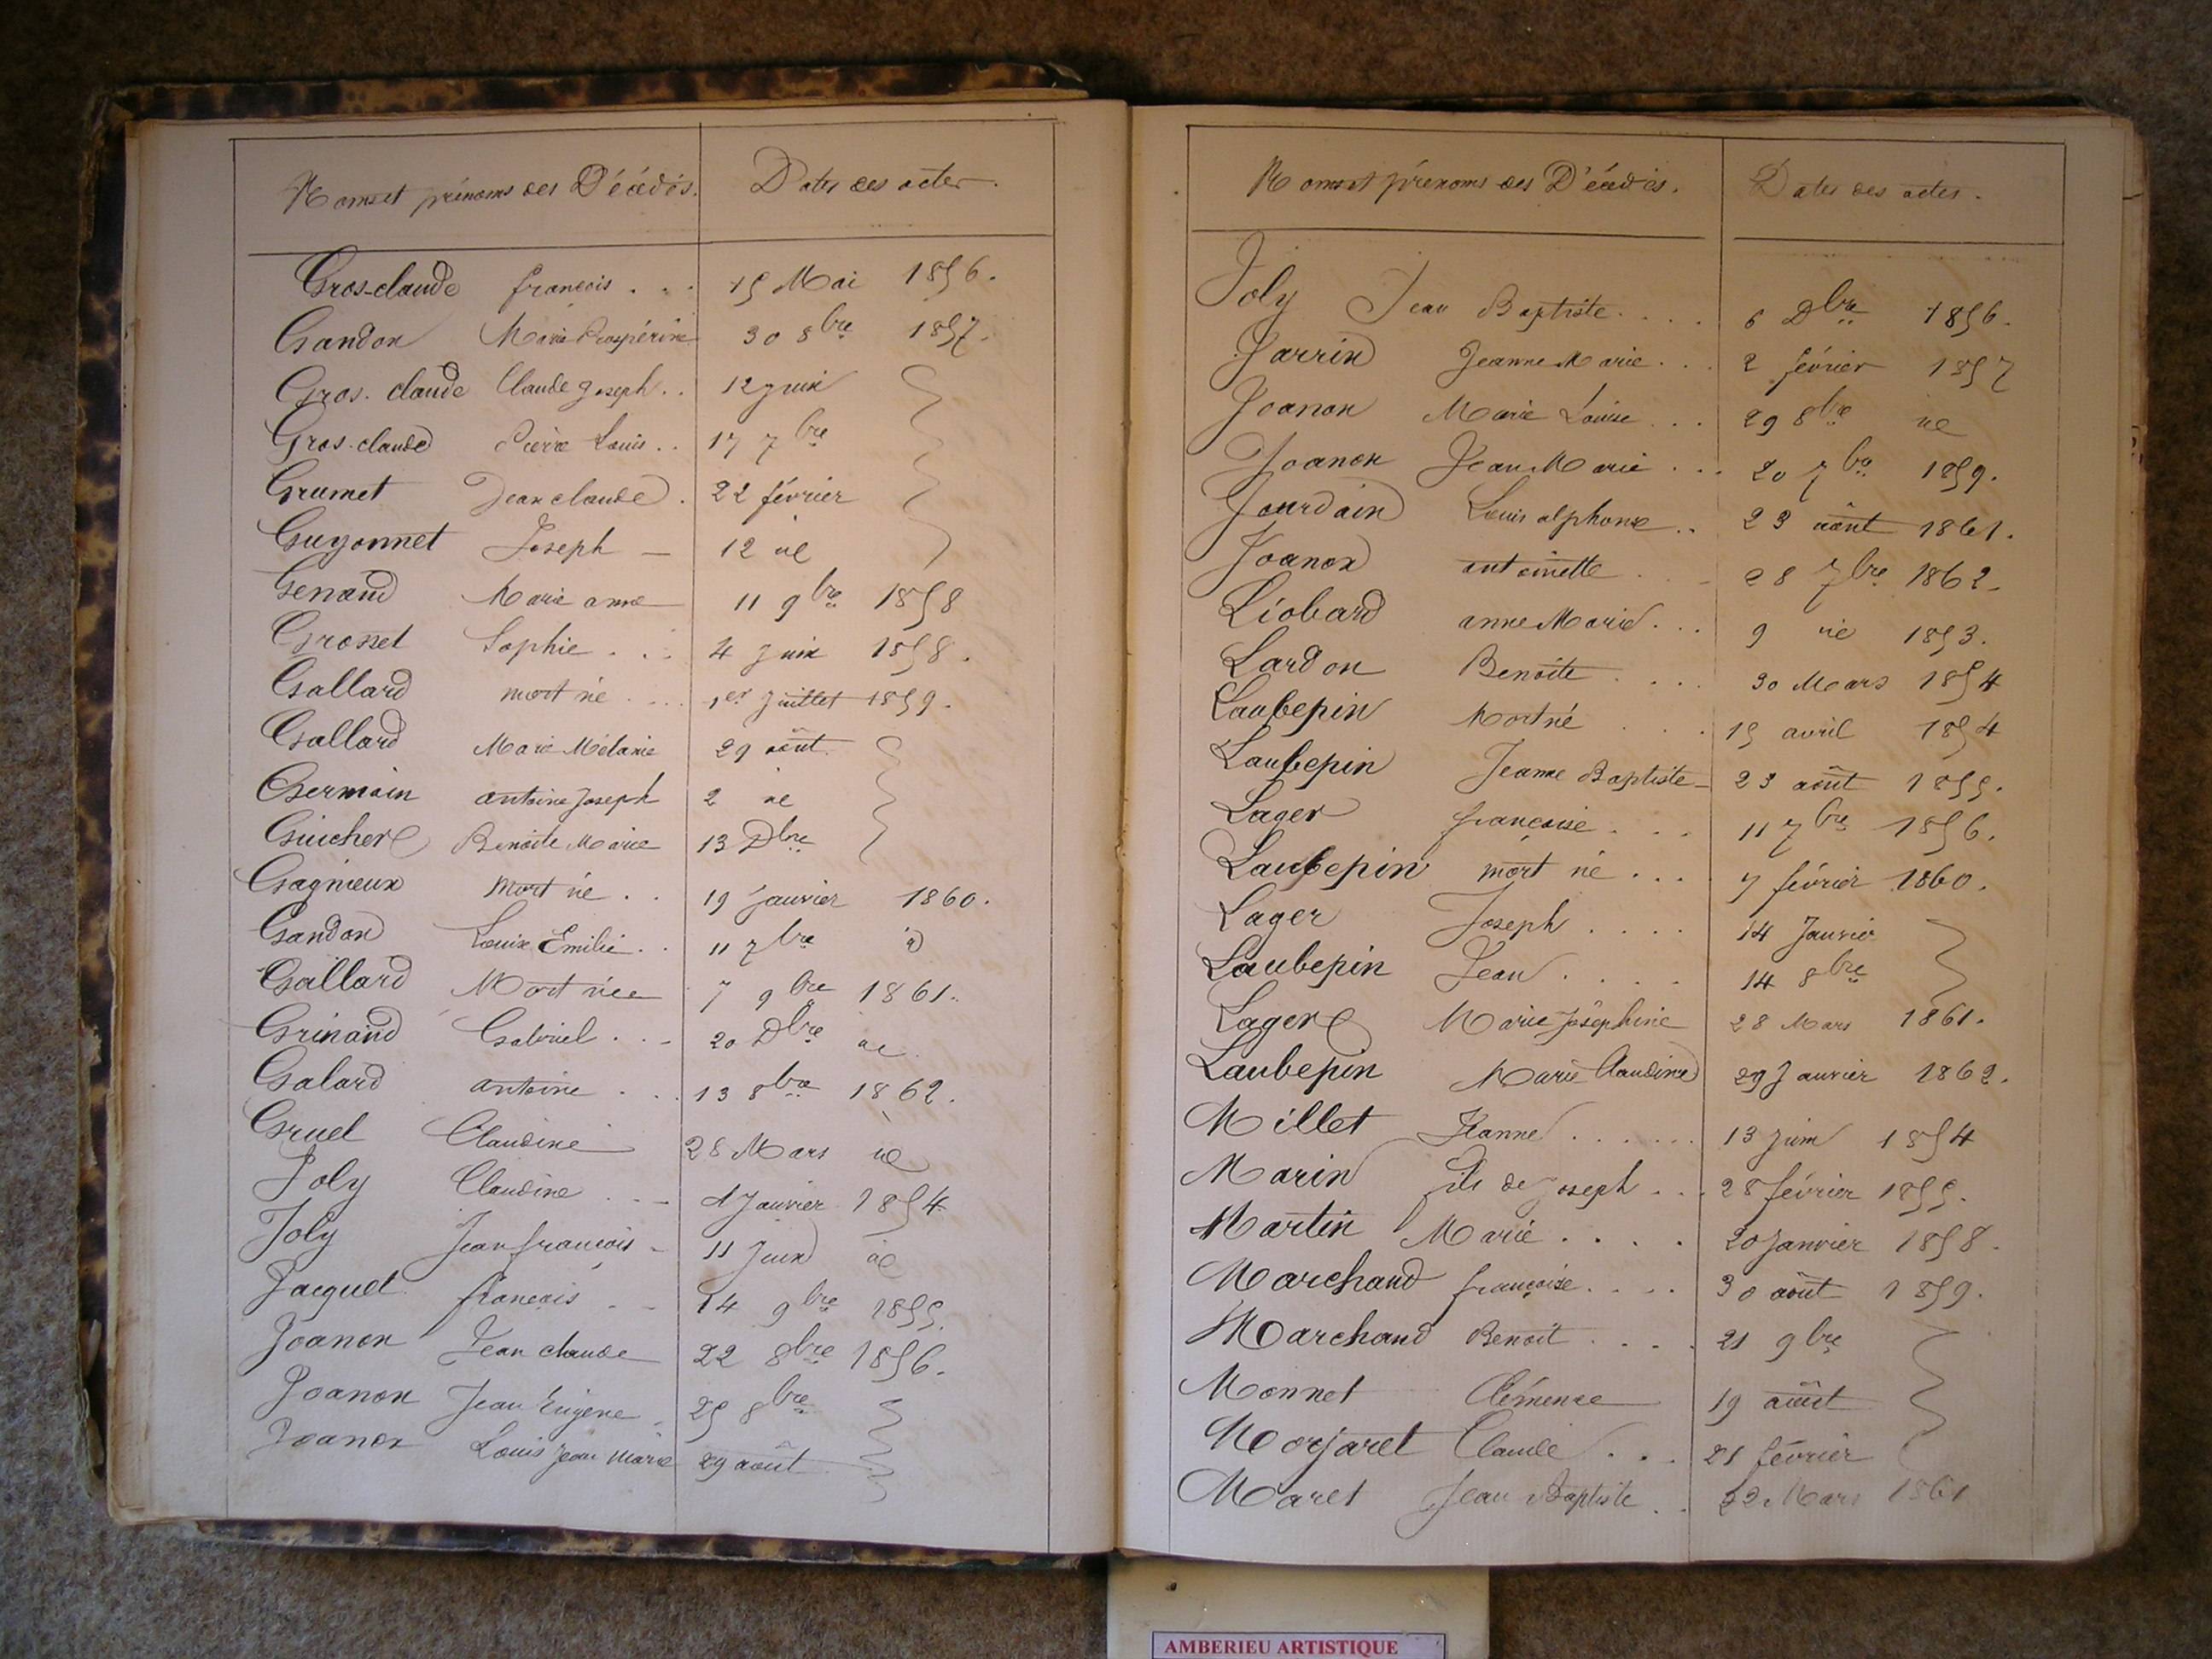 Noms et prénoms des Décédés. Dates des actes.
Gros-claude françois . . . 15 Mai 1856.
Gandon Marie Prospérine 30 8bre 1857.
Gros-claude Claude Joseph . . 12 juin
Gros-claude Pierre Louis . . 17 7bre
Grumet Jean claude . 22 février
Guyonnet Joseph — 12 id
Genaud Marie anne 11 9bre 1858
Grosset Sophie . . . 4 Juin 1858.
Gallard mort né . . . . 1er Juillet 1859.
Gallard Marie Mélanie 29 août
Germain antoine Joseph 2 id
Guichert Benoite Marie 13 Dbre
Gagnieux Mort né . . 19 Janvier 1860.
Gandon Louise Emilie . . 11 7bre id
Gallard Mort née 7 9bre 1861.
Grinand Gabriel . . - 20 Dbre id
Galard antoine . . . 13 8bre 1862.
Gruel Claudine 28 Mars id
Joly Claudine . . - Janvier 1854
Joly Jean françois - 11 Juin id
Jacquet françois - - 14 9bre 1855.
Joanon Jean claude 22 8bre 1856.
Joanon Jean Eugène - 25 8bre
Joanon Louis Jean Marie 29 août
Noms et prénoms des Décédés. Dates des actes.
Joly Jean Baptiste . . . . 6 Dbre 1856.
Jarrin Jeanne Marie . . . 2 février 1857
Joanon Marie Louise . . . 29 8bre id
Joanon Jean Marie . . . 20 7bre 1859.
Jourdain Louis alphonse . . 23 août 1861.
Joanon antoinette . . 28 7bre 1862.
Liobard anne Marie . . . 9 id 1853.
Lardon Benoite . . . . 30 Mars 1854
Laubepin Mort né . . . 15 avril 1854
Laubepin Jeanne Baptiste - 23 août 1855.
Lager françoise . . . 11 7bre 1856.
Laubepin mort né . . . . 7 février 1860.
Lager Joseph . . . . 14 Janvier
Laubepin Jean . . . . 14 8bre
Lager Marie Joséphine 28 Mars 1861.
Laubepin Marie Claudine 29 Janvier 1862.
Millet Jeanne . . . . . . 13 Juin 1854
Marin fils de Joseph . . . 28 février 1855.
Martin Marie . . . . 20 Janvier 1858.
Marchand françoise . . . . 30 août 1859.
Marchand Benoit . . . . 21 9bre
Monnet Clémence 19 août
Morjaret Claude . . . 21 février
Maret Jean Baptiste . . 22 Mars 1861
AMBERIEU ARTISTIQUE